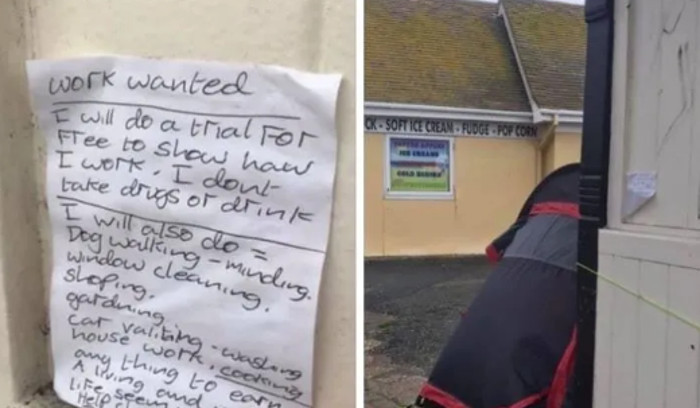 work wanted
I will do a trial FOR
Free to show haw
I work. I dont
take drugs or drink
I will also do =
Dog walking - minding.
window cleaning.
shoping.
gardning
car valiting - washing
house work. cooking
any thing to earn
A living and
life seem
Help
CK - SOFT ICE CREAM - FUDGE - POP CORN
ICE CREAMS
COLD DRINKS